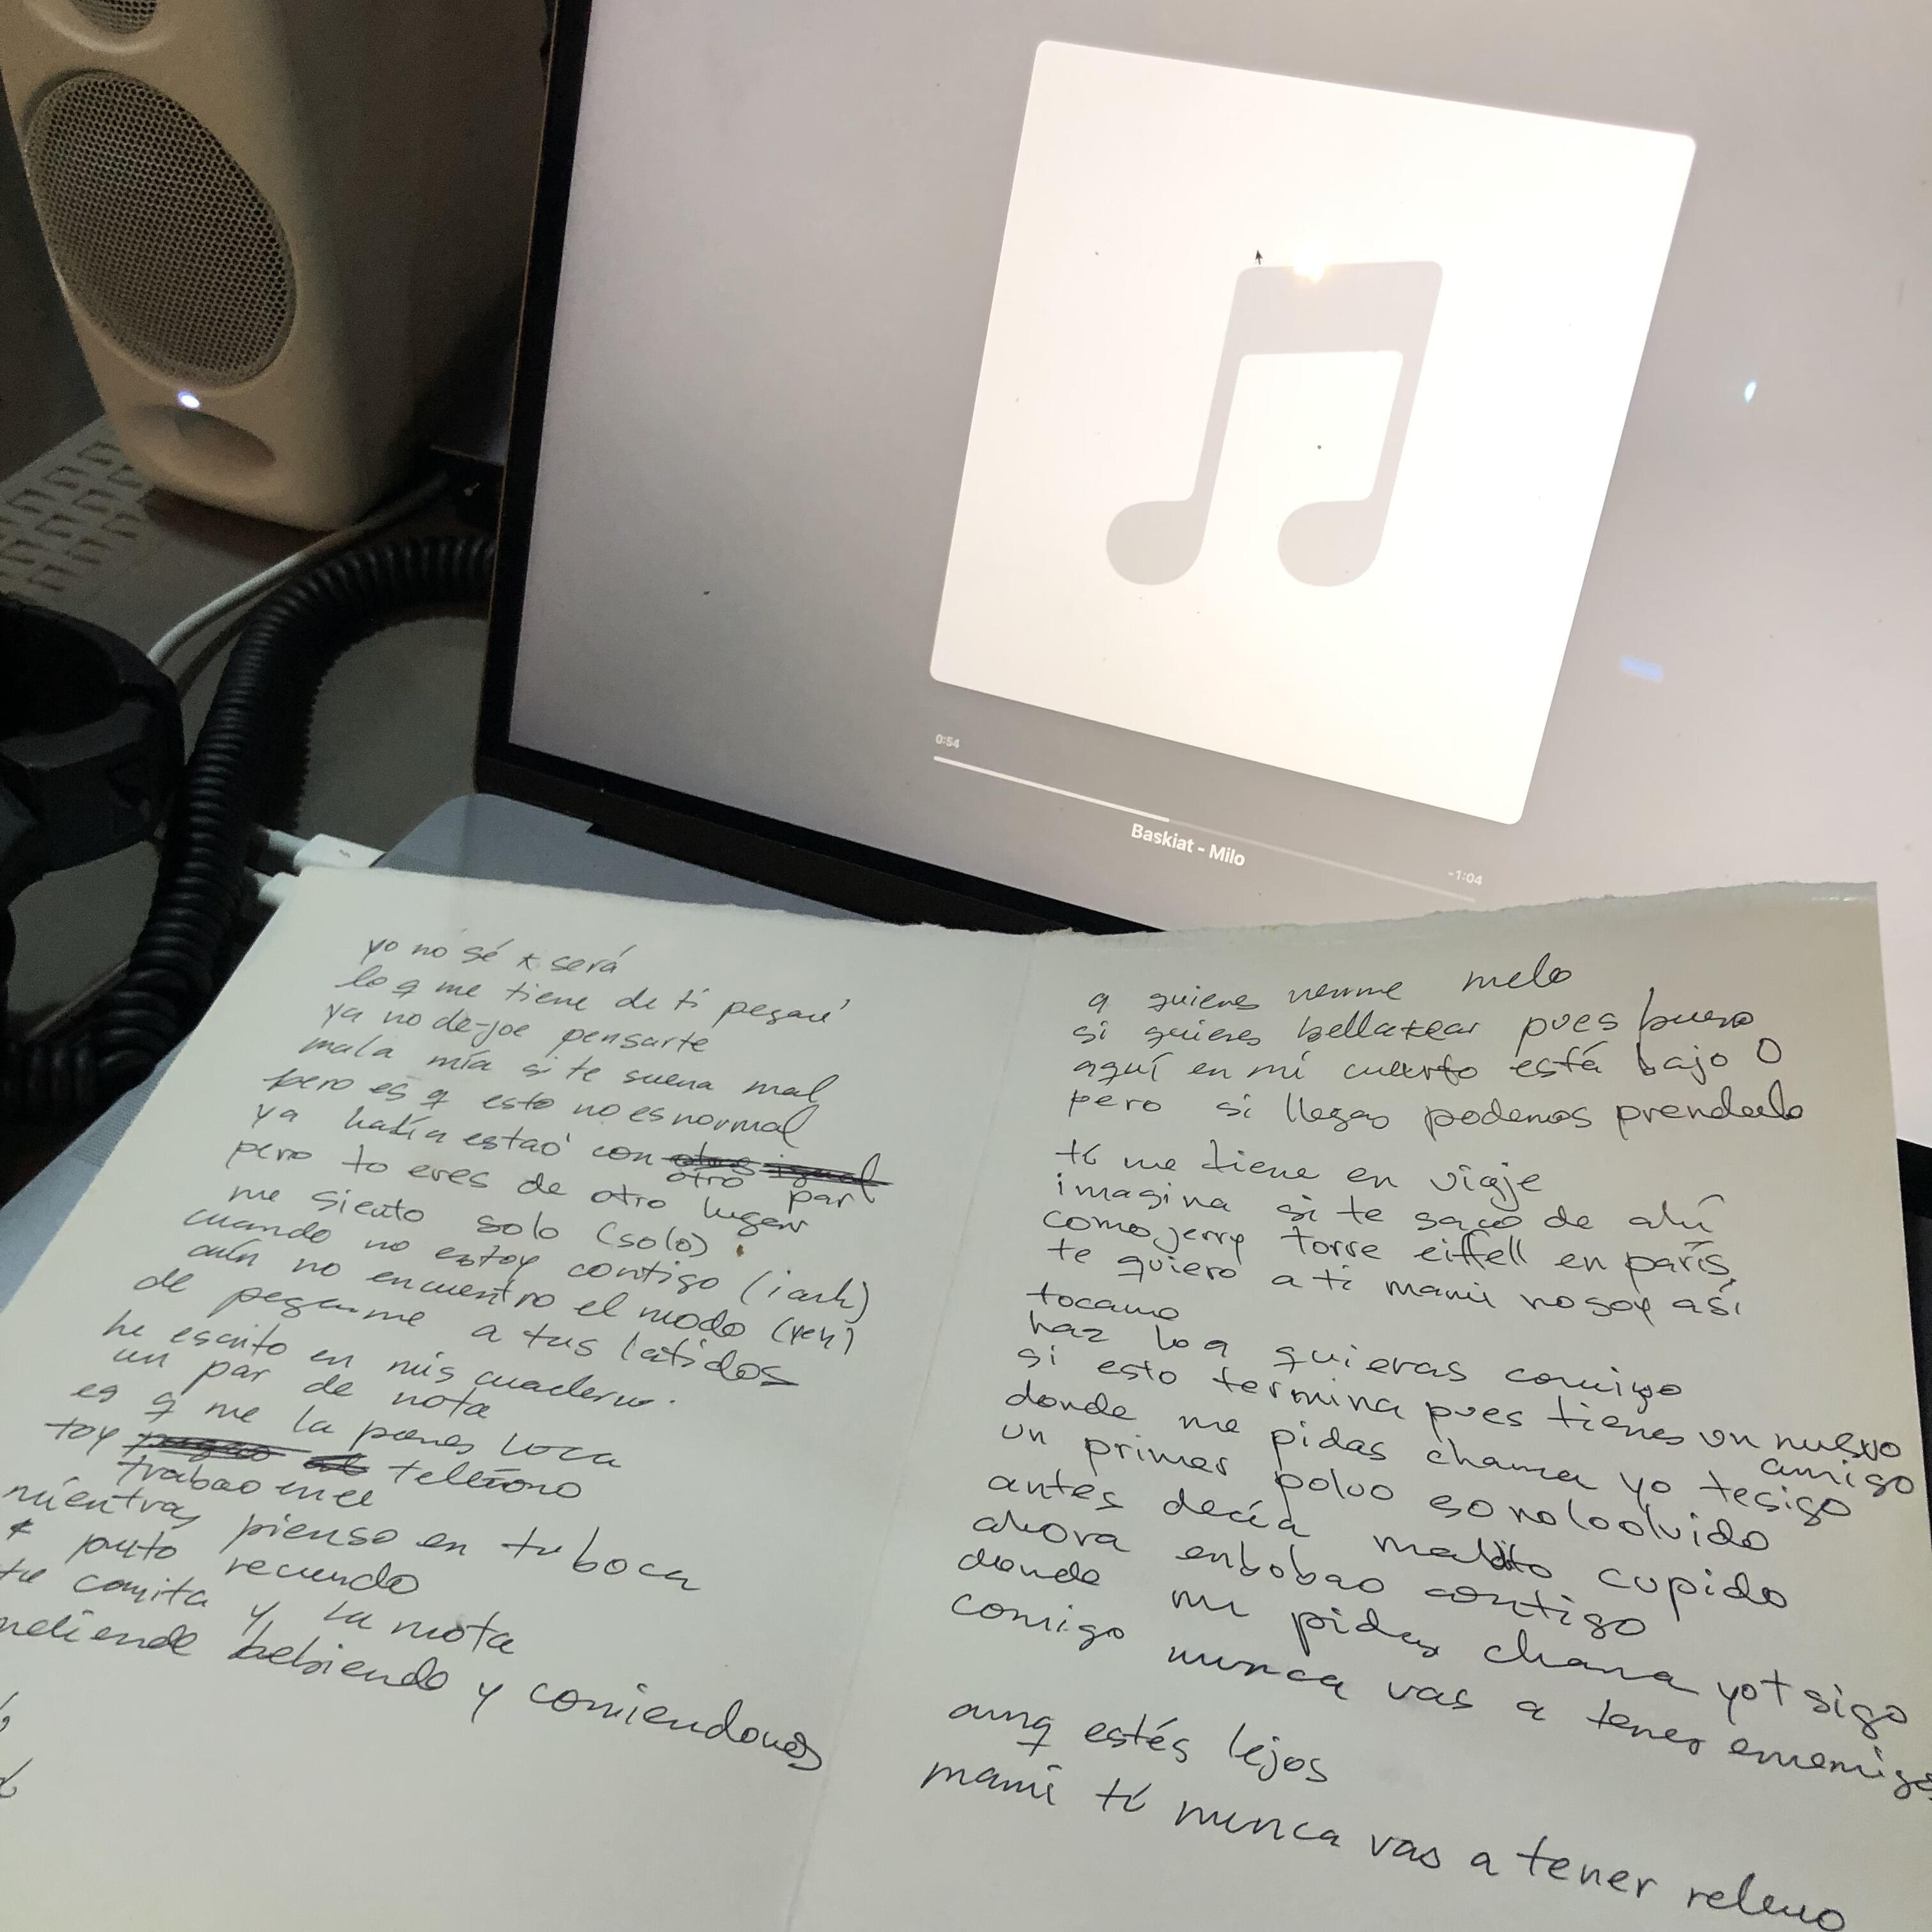 0:54
Baskiat - Milo
-1:04
yo no sé x será
lo q me tiene de ti pegau'
ya no de-joe pensarte
mala mía si te suena mal
pero es q esto no es normal
ya había estao' con
otro par
pero to eres de otro lugar
me siento solo (solo)
cuando no estoy contigo
aún no encuentro el modo (yeh)
de pegarme a tus latidos
he escrito en mis cuaderno.
un par de nota
es q me la pones loca
toy telefono
trabao en el
mientras pienso en tu boca
x puto recuerdo
tu carita y la nota
bebiendo y comiendonos
q quieres verme melo
si quieres bellaxear pues bueno
aquí en mi cuarto está bajo 0
pero si llegas podemos prenderlo
tí me tiene en viaje
imagina si te saco de ahí
como jerry torre eiffell en parís,
te quiero a ti mami no soy así
tocamo
haz lo q quieras comigo
si esto termina pues tienes un nuevo
amigo
donde me pidas chama yo tesigo
un primer polvo eso nolo olvido
antes decía maldito cupido
ahora enbobao contigo
donde me pidas chama yo t sigo
comigo nunca vas a tener enemigo
aunq estés lejos
mami tí nunca vas a tener relevo